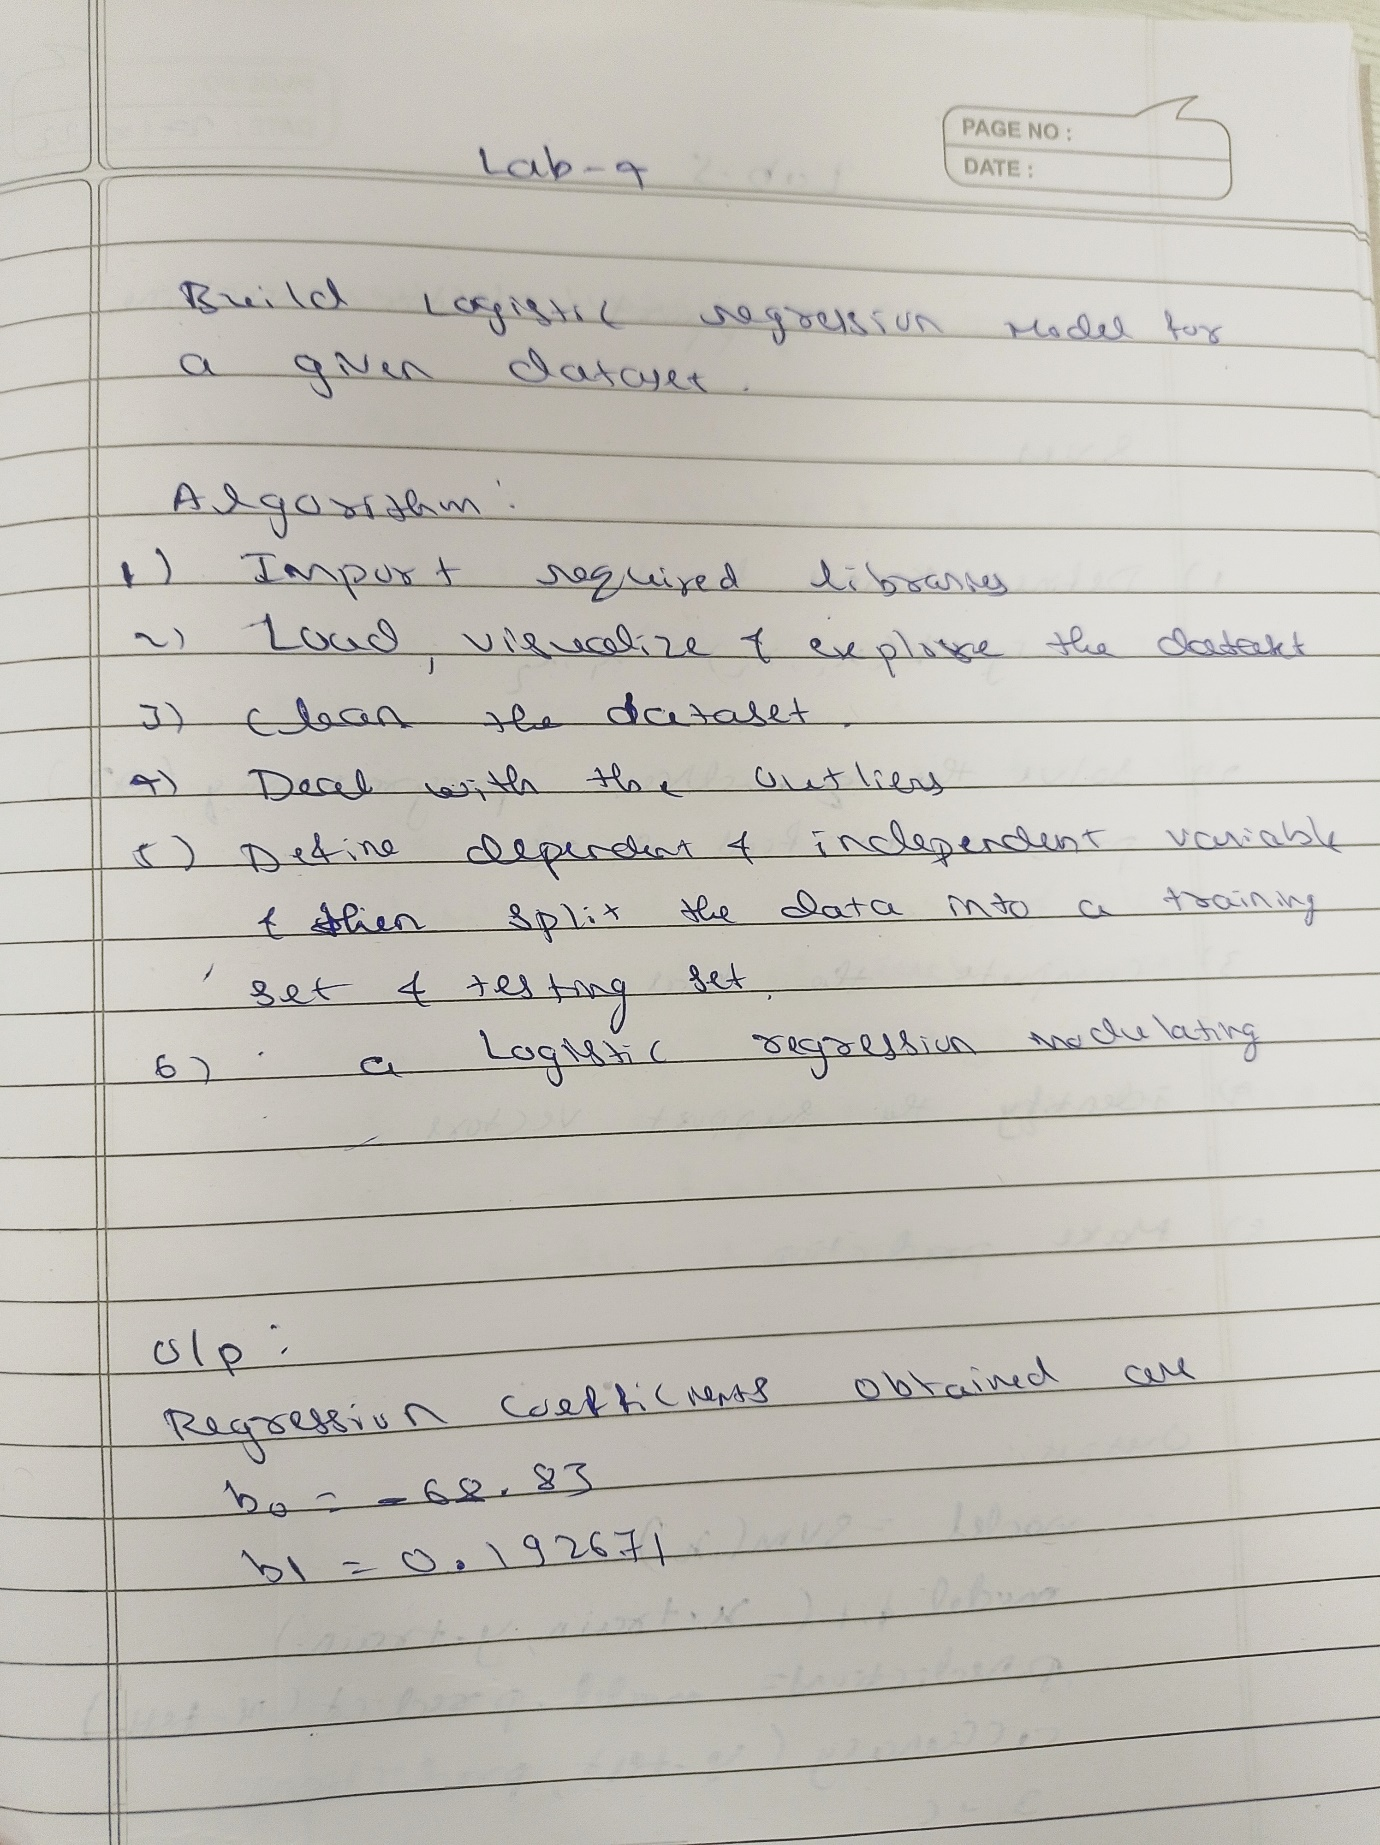 PAGE NO :
DATE :
Lab-4
Build Logistic regression model for
a given dataset.
Algorithm:
1) Import required libraries
2) Load, visualize & explore the dataset
3) Clean the dataset.
4) Deal with the outliers
5) Define dependent & independent variable
& then split the data into a training
set & testing set.
6) a Logistic regression
O/p :
Regression Coefficients obtained are
b0 = -68.83
b1 = 0.192671